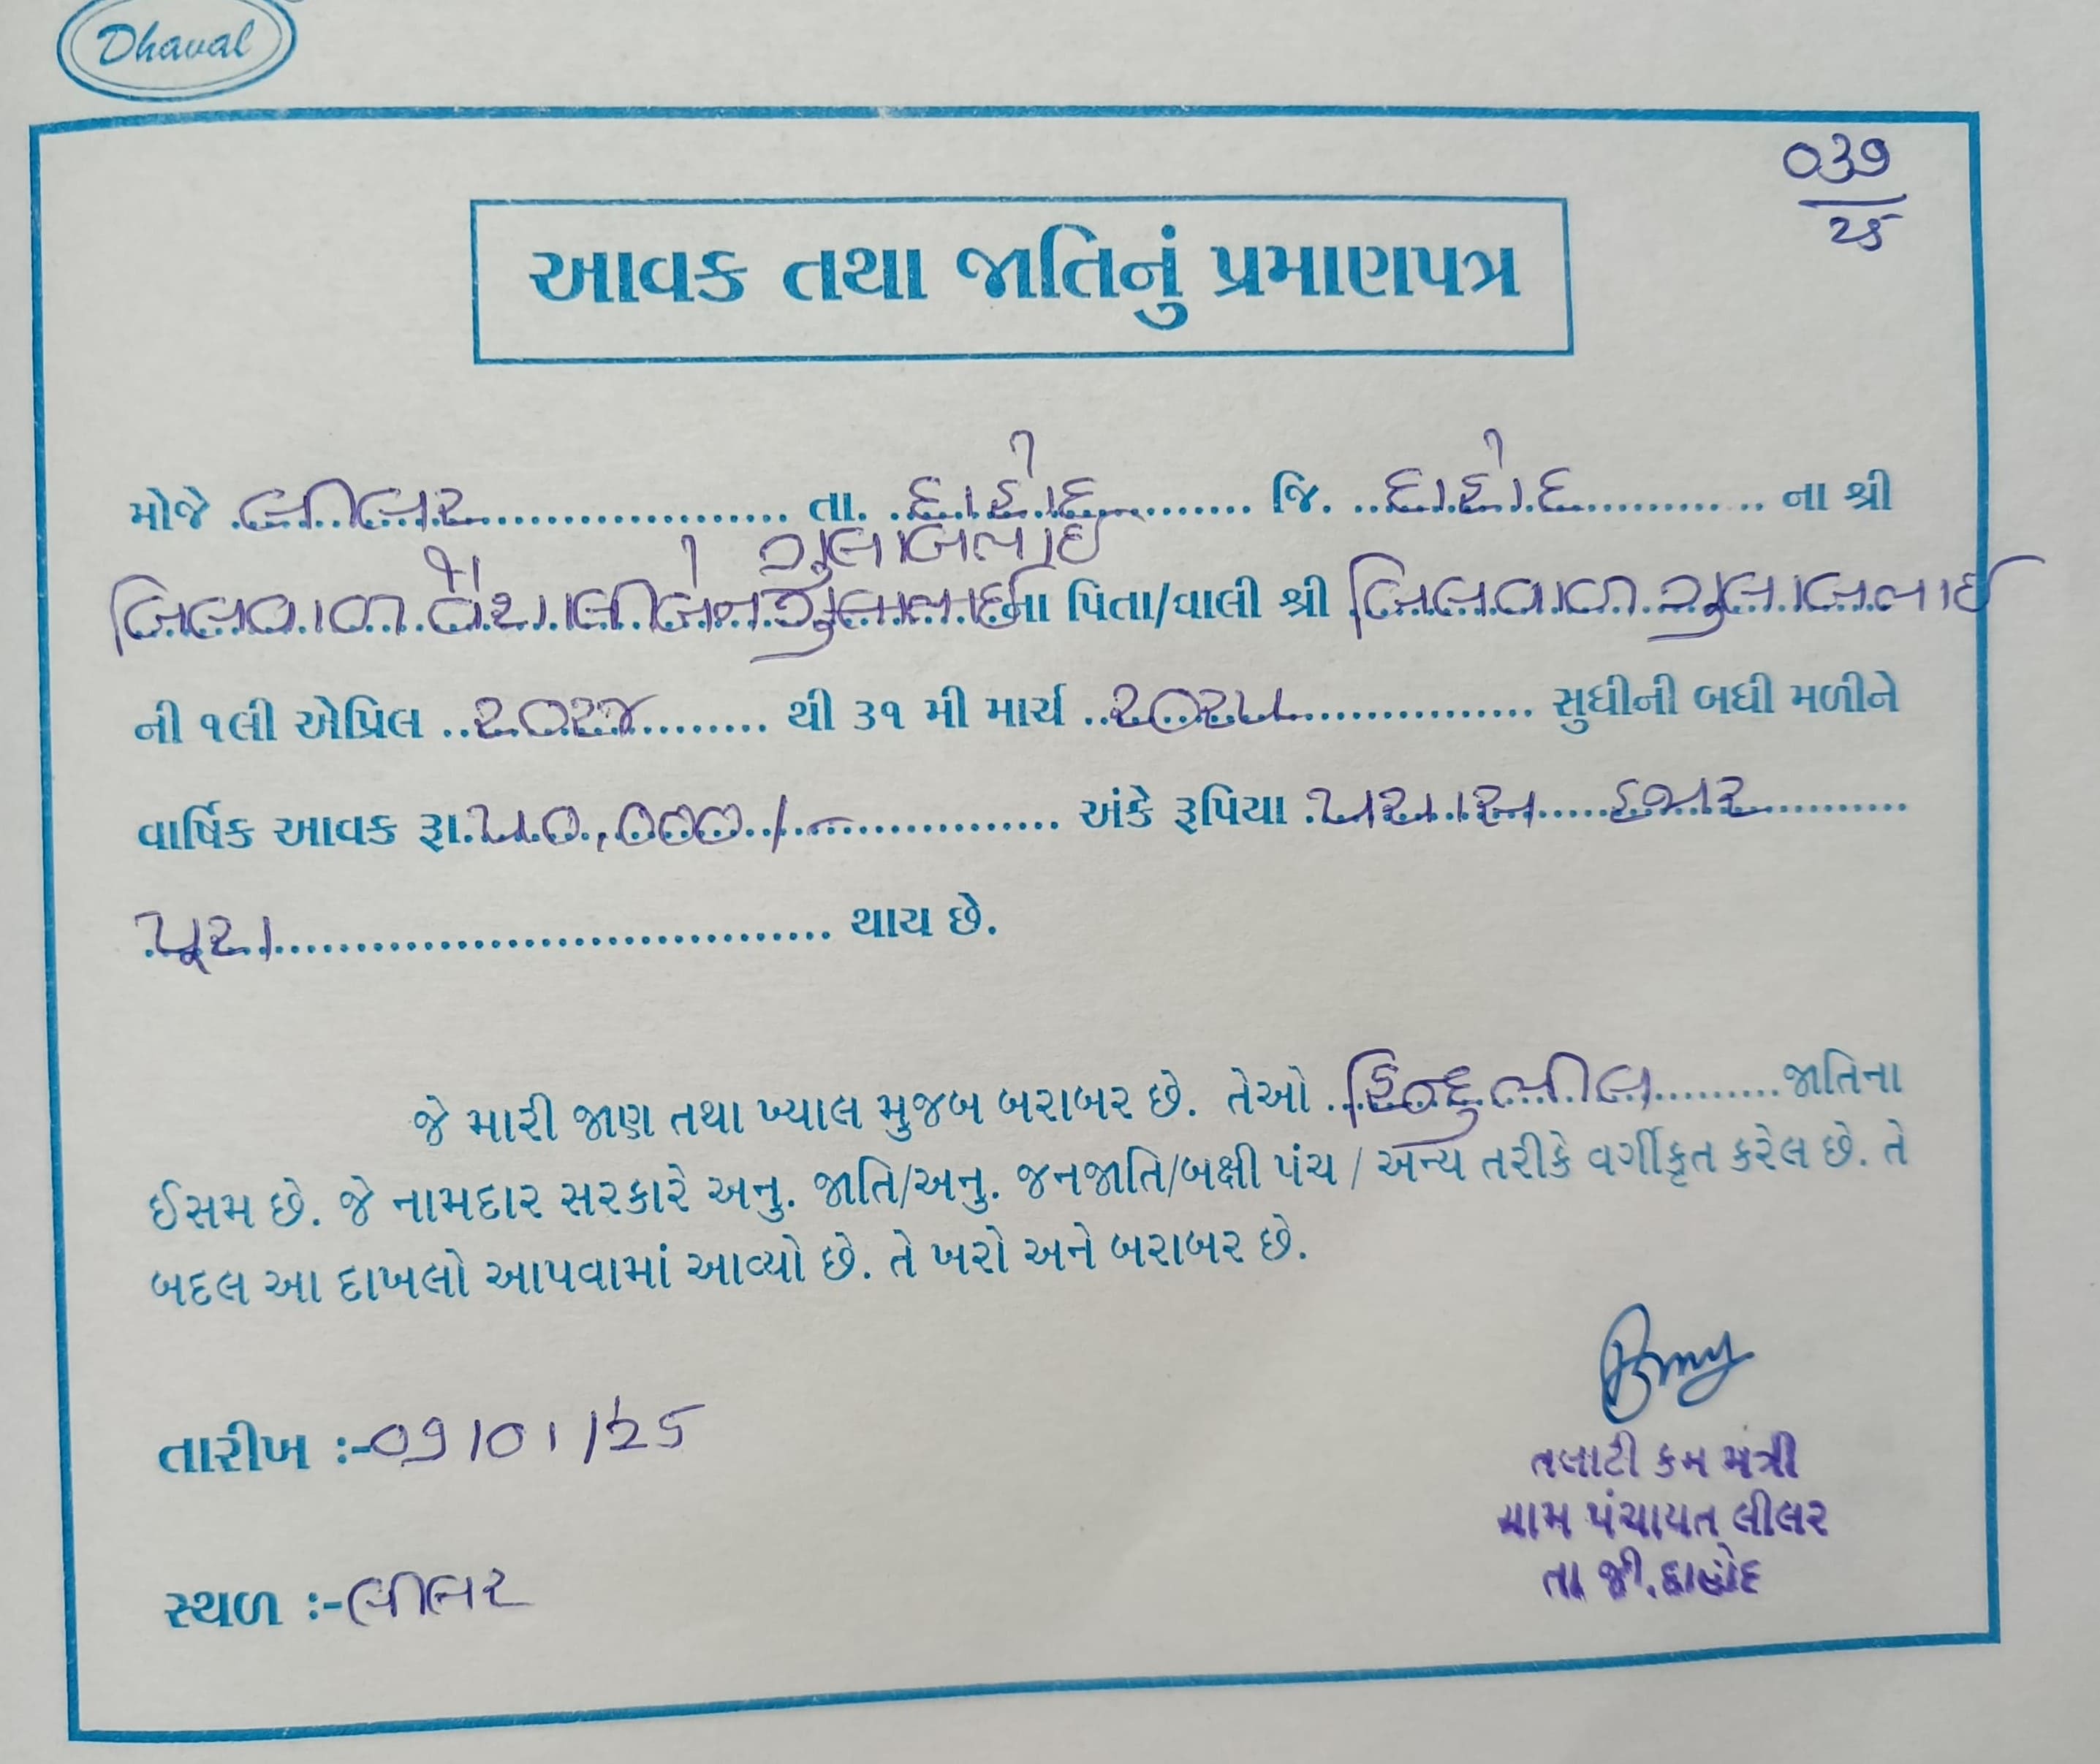 Dhaval
039
25
આવક તથા જાતિનું પ્રમાણપત્ર
મોજે લીલર તા. દાહોદ જિ. દાહોદ ના શ્રી
ગુલાબભાઈ
બિલવાળ વૈશાલીબેન ના પિતા/વાલી શ્રી બિલવાળ ગુલાબભાઈ
ની ૧લી એપ્રિલ ૨૦૨૪ થી ૩૧ મી માર્ચ ૨૦૨૫ સુધીની બધી મળીને
વાર્ષિક આવક રૂા. ૫૦,૦૦૦/- અંકે રૂપિયા પચાસ હજાર
પૂરા થાય છે.
જે મારી જાણ તથા ખ્યાલ મુજબ બરાબર છે. તેઓ હિન્દુ ભીલ જાતિના
ઈસમ છે. જે નામદાર સરકારે અનુ. જાતિ/અનુ. જનજાતિ/બક્ષી પંચ / અન્ય તરીકે વર્ગીકૃત કરેલ છે. તે
બદલ આ દાખલો આપવામાં આવ્યો છે. તે ખરો અને બરાબર છે.
તારીખ :- 09/01/25
તલાટી કમ મંત્રી
ગ્રામ પંચાયત લીલર
તા જી. દાહોદ
સ્થળ :- લીલર